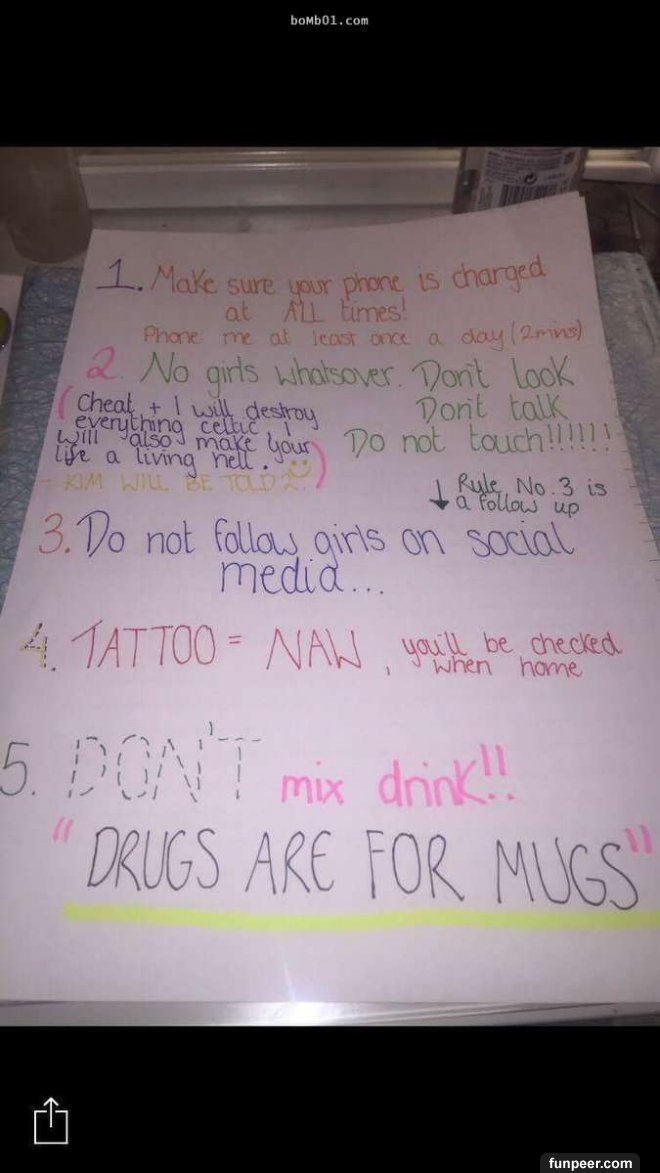 boMb01.com
1. Make sure your phone is charged
at ALL times!
Phone me at least once a day (2mins)
2. No girls whatsover. Don't look
Don't talk
Do not touch!!!!!!
(Cheat + I will destroy
everything celtic. I
will also make your
life a living hell. )
- KIM WILL BE TOLD 2.
↓ Rule No. 3 is
a follow up
3. Do not follow girls on social
media...
4. TATTOO = NAW, you'll be checked
when home
5. DON'T mix drink!!
"DRUGS ARE FOR MUGS"
funpeer.com